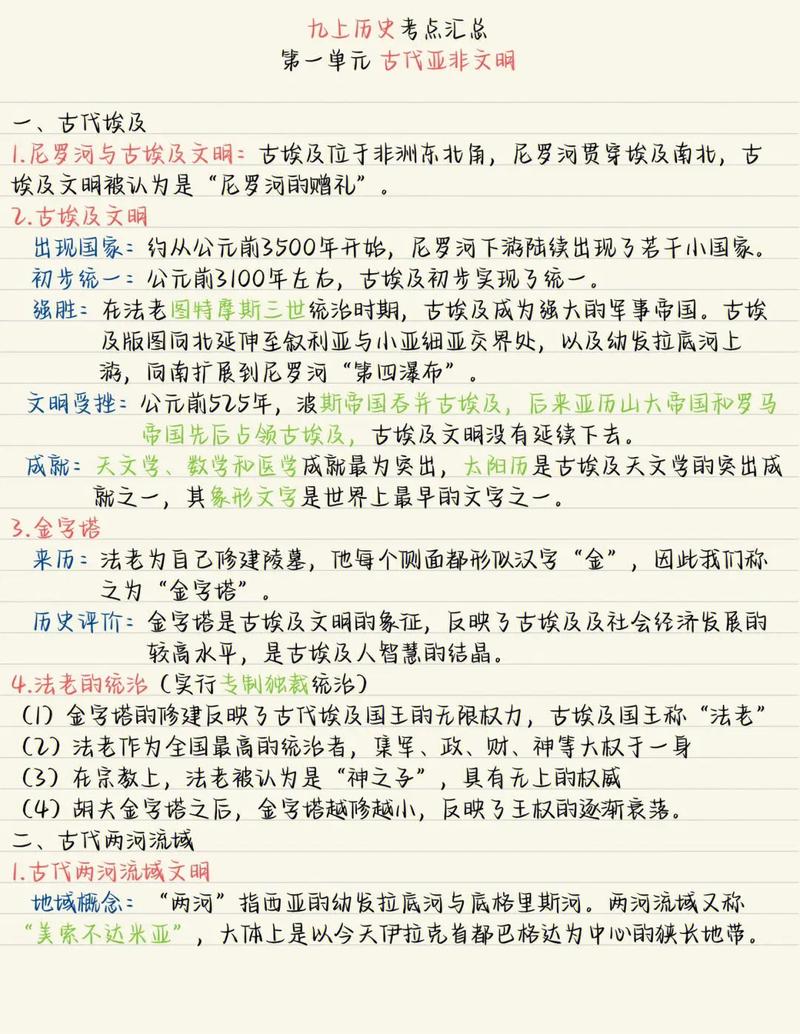 九上历史考点汇总
第一单元 古代亚非文明
一、古代埃及
1.尼罗河与古埃及文明：古埃及位于非洲东北角，尼罗河贯穿埃及南北，古
埃及文明被认为是“尼罗河的赠礼”。
2.古埃及文明
出现国家：约从公元前3500年开始，尼罗河下游陆续出现了若干小国家。
初步统一：公元前3100年左右，古埃及初步实现了统一。
强胜：在法老图特摩斯三世统治时期，古埃及成为强大的军事帝国。古埃
及版图向北延伸至叙利亚与小亚细亚交界处，以及幼发拉底河上
游，向南扩展到尼罗河“第四瀑布”。
文明受挫：公元前525年，波斯帝国吞并古埃及，后来亚历山大帝国和罗马
帝国先后占领古埃及，古埃及文明没有延续下去。
成就：天文学、数学和医学成就最为突出，太阳历是古埃及天文学的突出成
就之一，其象形文字是世界上最早的文字之一。
3.金字塔
来历：法老为自己修建陵墓，他每个侧面都形似汉字“金”，因此我们称
之为“金字塔”。
历史评价：金字塔是古埃及文明的象征，反映了古埃及及社会经济发展的
较高水平，是古埃及人智慧的结晶。
4.法老的统治（实行专制独裁统治）
（1）金字塔的修建反映了古代埃及国王的无限权力，古埃及国王称“法老”
（2）法老作为全国最高的统治者，集军、政、财、神等大权于一身
（3）在宗教上，法老被认为是“神之子”，具有无上的权威
（4）胡夫金字塔之后，金字塔越修越小，反映了王权的逐渐衰落。
二、古代两河流域
1.古代两河流域文明
地域概念：“两河”指西亚的幼发拉底河与底格里斯河。两河流域又称
“美索不达米亚”，大体上是以今天伊拉克首都巴格达为中心的狭长地带。